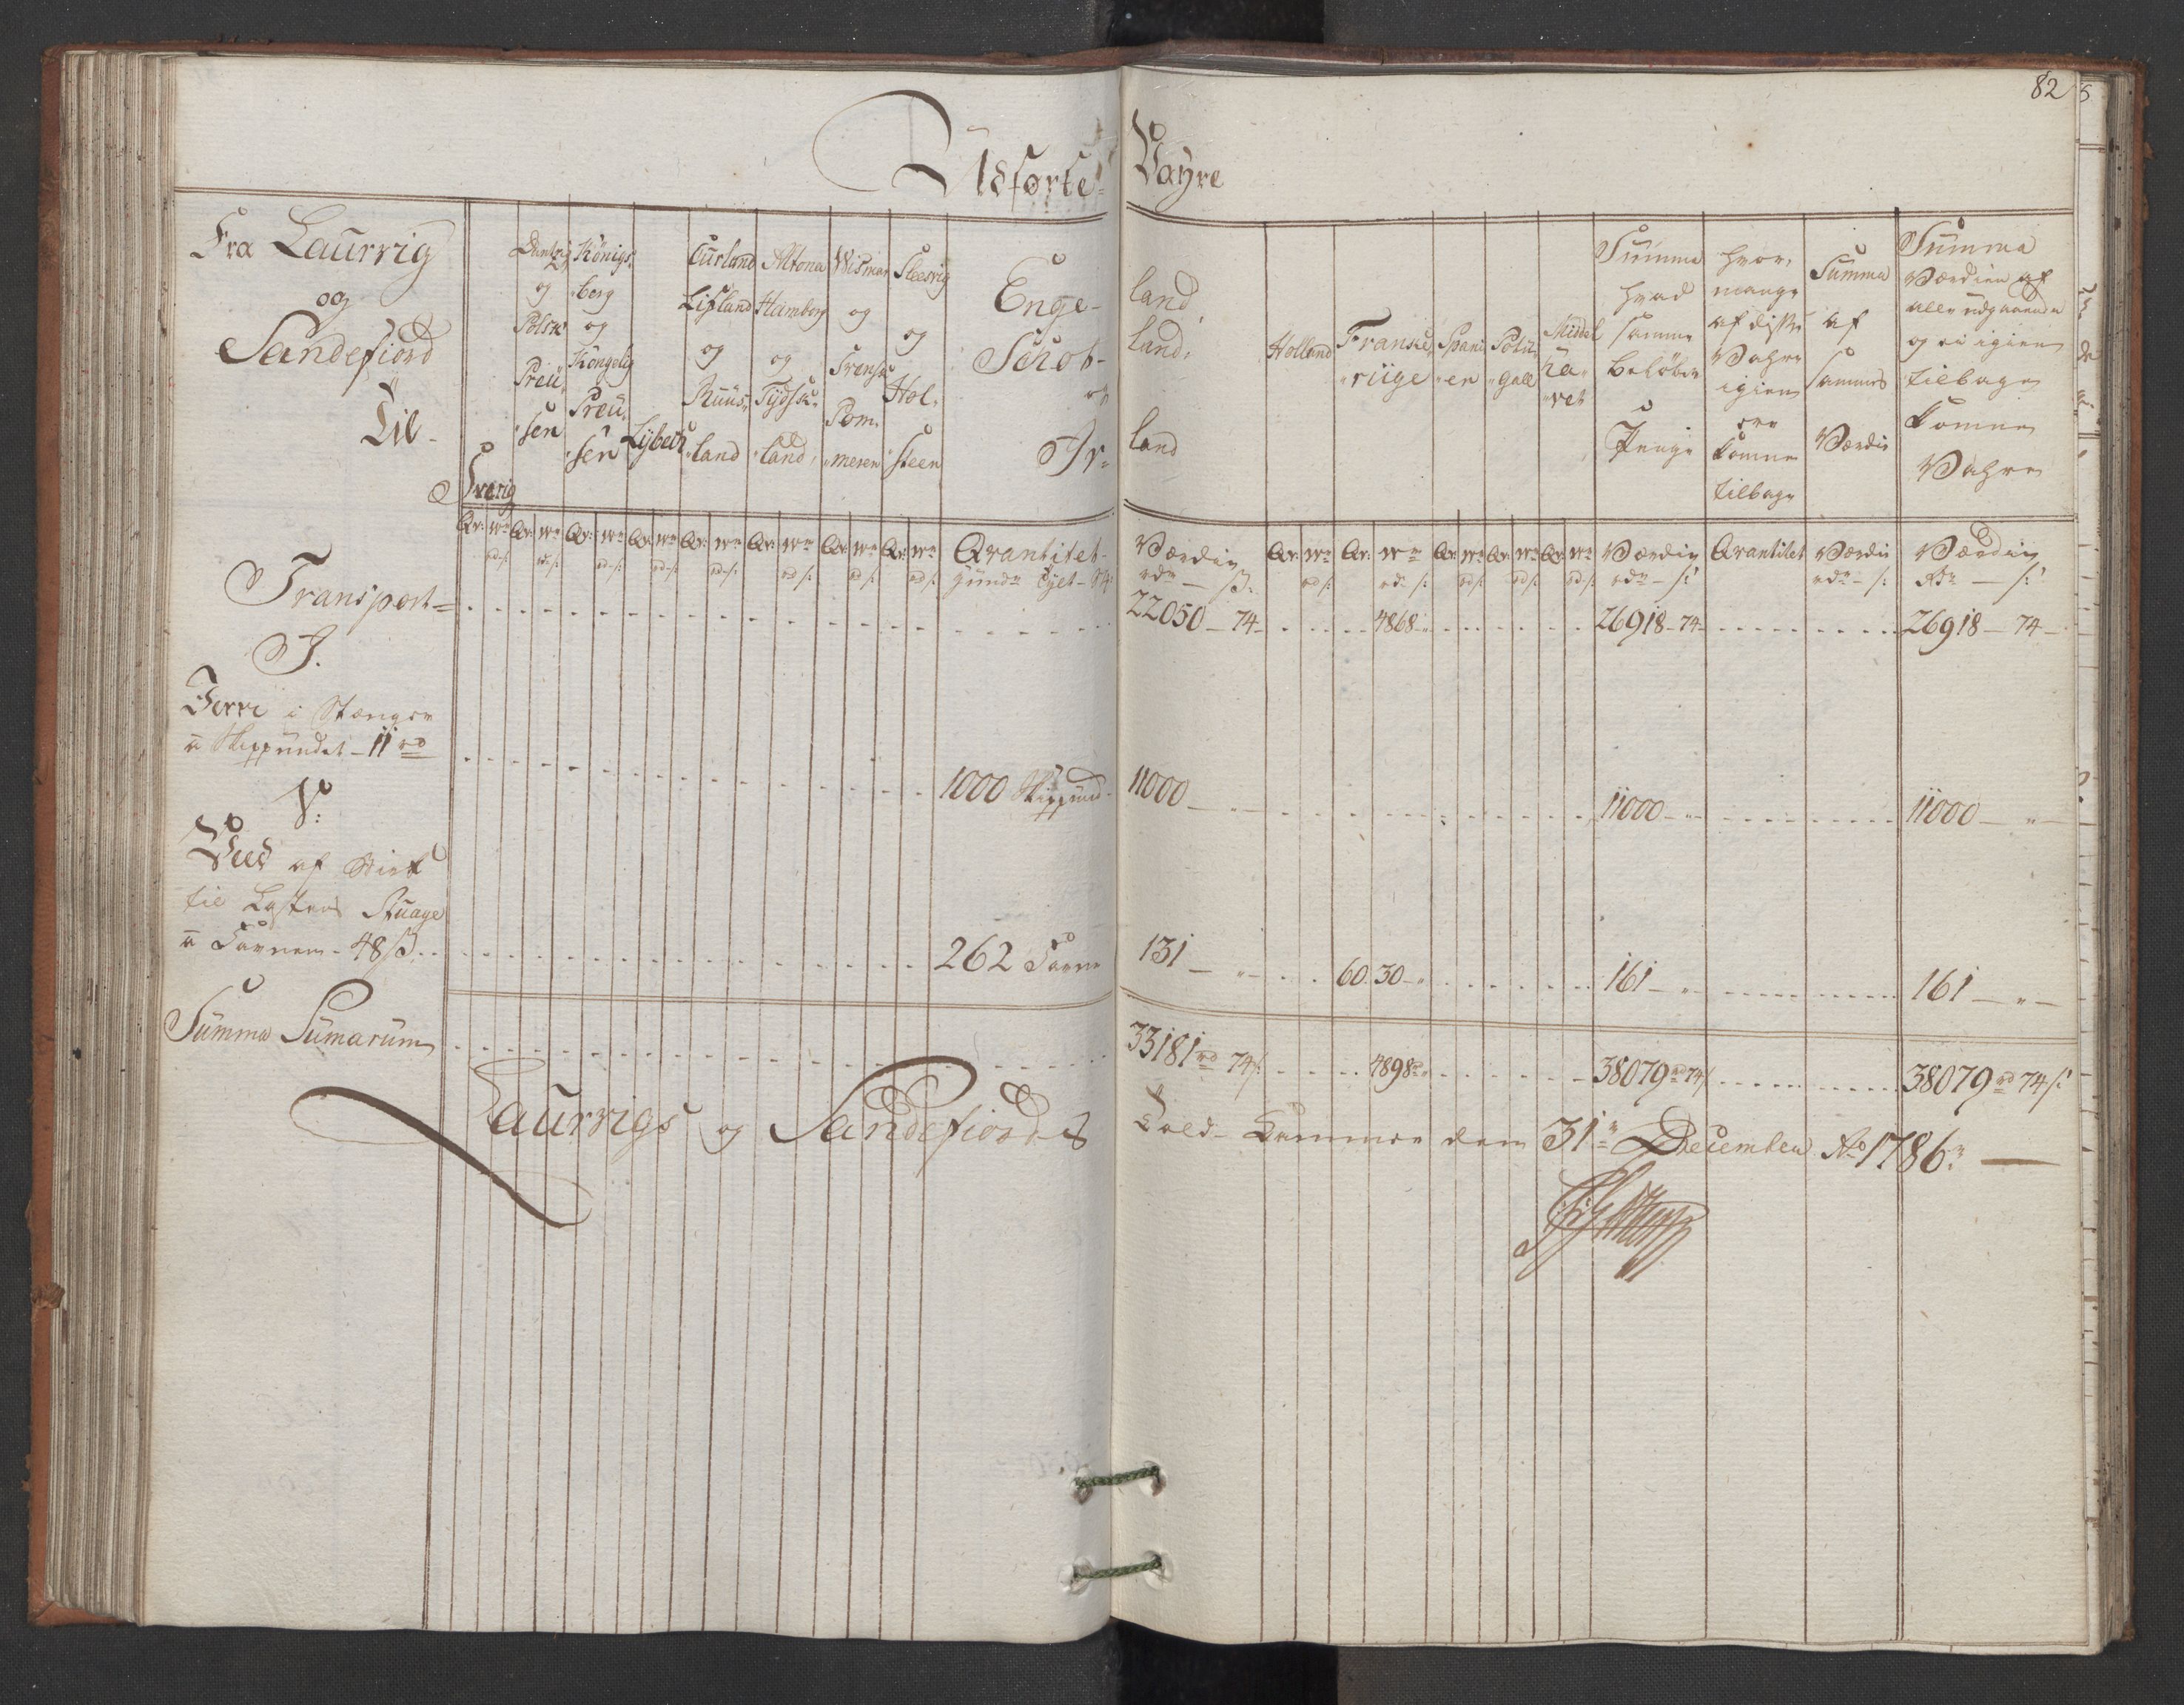 82
Udførte Vayre
Fra Laurvig
og
Sandefiord
Til
Sverig
Dantzig og Polsk Preussen
Königsberg og Kongelig Preussen
Lÿbeck
Curland Lifland og Ruusland
Altona Hamborg og Tydskland
Wismar og Svensk Pommeren
Sleesvig og Holsteen
Engeland,
Schotland,
og Irland
Holland
Frankeriige
Spanien
Potugall
Middelhavet
Summa hvad samme beløber Penge
hvor mange af disse Vahre igien ere komne tilbage
Summa af sammes Værdie
Summa Værdien af alle udgaaende og ei igien tilbage komne Vahre
Qv: We Qv: We Qv: We Qv: We Qv: We Qv: We Qv: We Qv: We Qvantitet Værdien Qv: We Qv: We Qv: We Qv: We Qv: We Værdien Qvantitet Værdie Værdien
rdr — s:
Transport = 22050 — 74 4868 - „ 26918 - 74 26918 — 74
J.
Jern i Stænger
a Skippundet - 11 rd 1000 Skippund 11000 — „ 11000 - „ 11000 — „
V:
Veed af Birk
til Lastens Stuage
a Favnen - 48 s 262 Favne 131 — „ 60. 30 - „ 161 - „ 161 — „
Summa Sumarum 33181 rd 74 s: 4898 rd „ 38079 rd 74 s 38079 rd 74 s:
Laurvigs og Sandefiords Told-Kammer den 31te December Ao 1786.